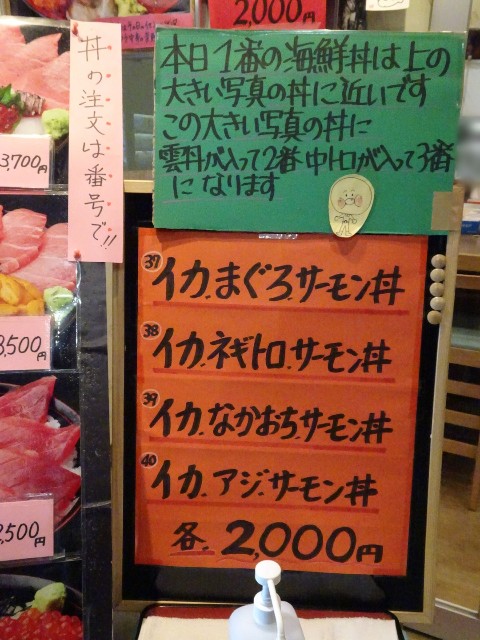 2,000円
丼の注文は番号で!!
本日1番の海鮮丼は上の
大きい写真の丼に近いです
この大きい写真の丼に
雲丹が入って2番中トロが入って3番
になります
3,700円
8,500円
,500円
㊲イカ.まぐろ.サーモン丼
㊳イカ.ネギトロ.サーモン丼
㊴イカ.なかおち.サーモン丼
㊵イカ.アジ.サーモン丼
各.2,000円